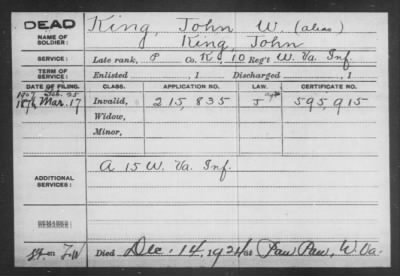 DEAD
King, John W. (alias)
NAME OF SOLDIER: King, John
SERVICE: Late rank, P Co. K, 10 Reg't W. Va. Inf.
TERM OF SERVICE: Enlisted , 1 Discharged , 1
DATE OF FILING. CLASS. APPLICATION NO. LAW. CERTIFICATE NO.
Feb. 25
1876 Mar. 17 Invalid, 215,835 J 595,915
Widow,
Minor,
ADDITIONAL SERVICES: A 15 W. Va. Inf.
REMARKS:
Died Dec. 14, 1924 at Paw Paw, W. Va.